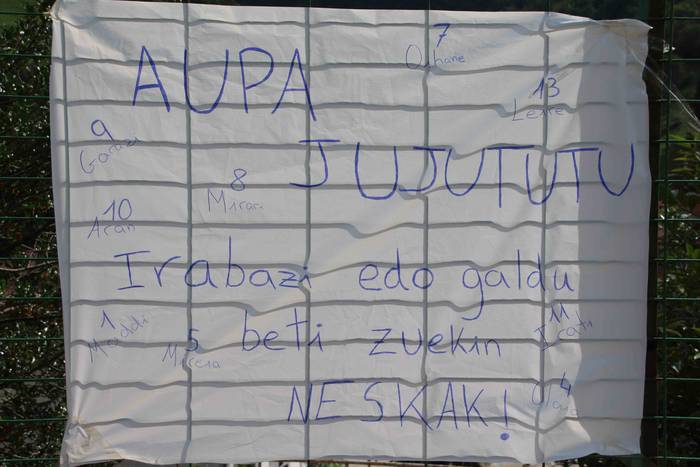 7
Oihane
AUPA
13
Leire
9
Garazi
JUJUTUTU
8
Miren
10
Aran
Irabazi edo galdu
1
Maddi
11
Irati
5
beti zuekin
Mirena
4
NESKAK!